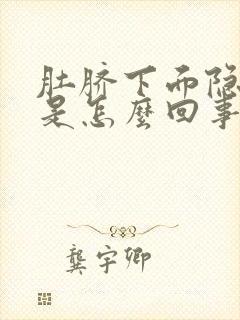 肚脐下而隐
是怎麼回事
龚宇卿